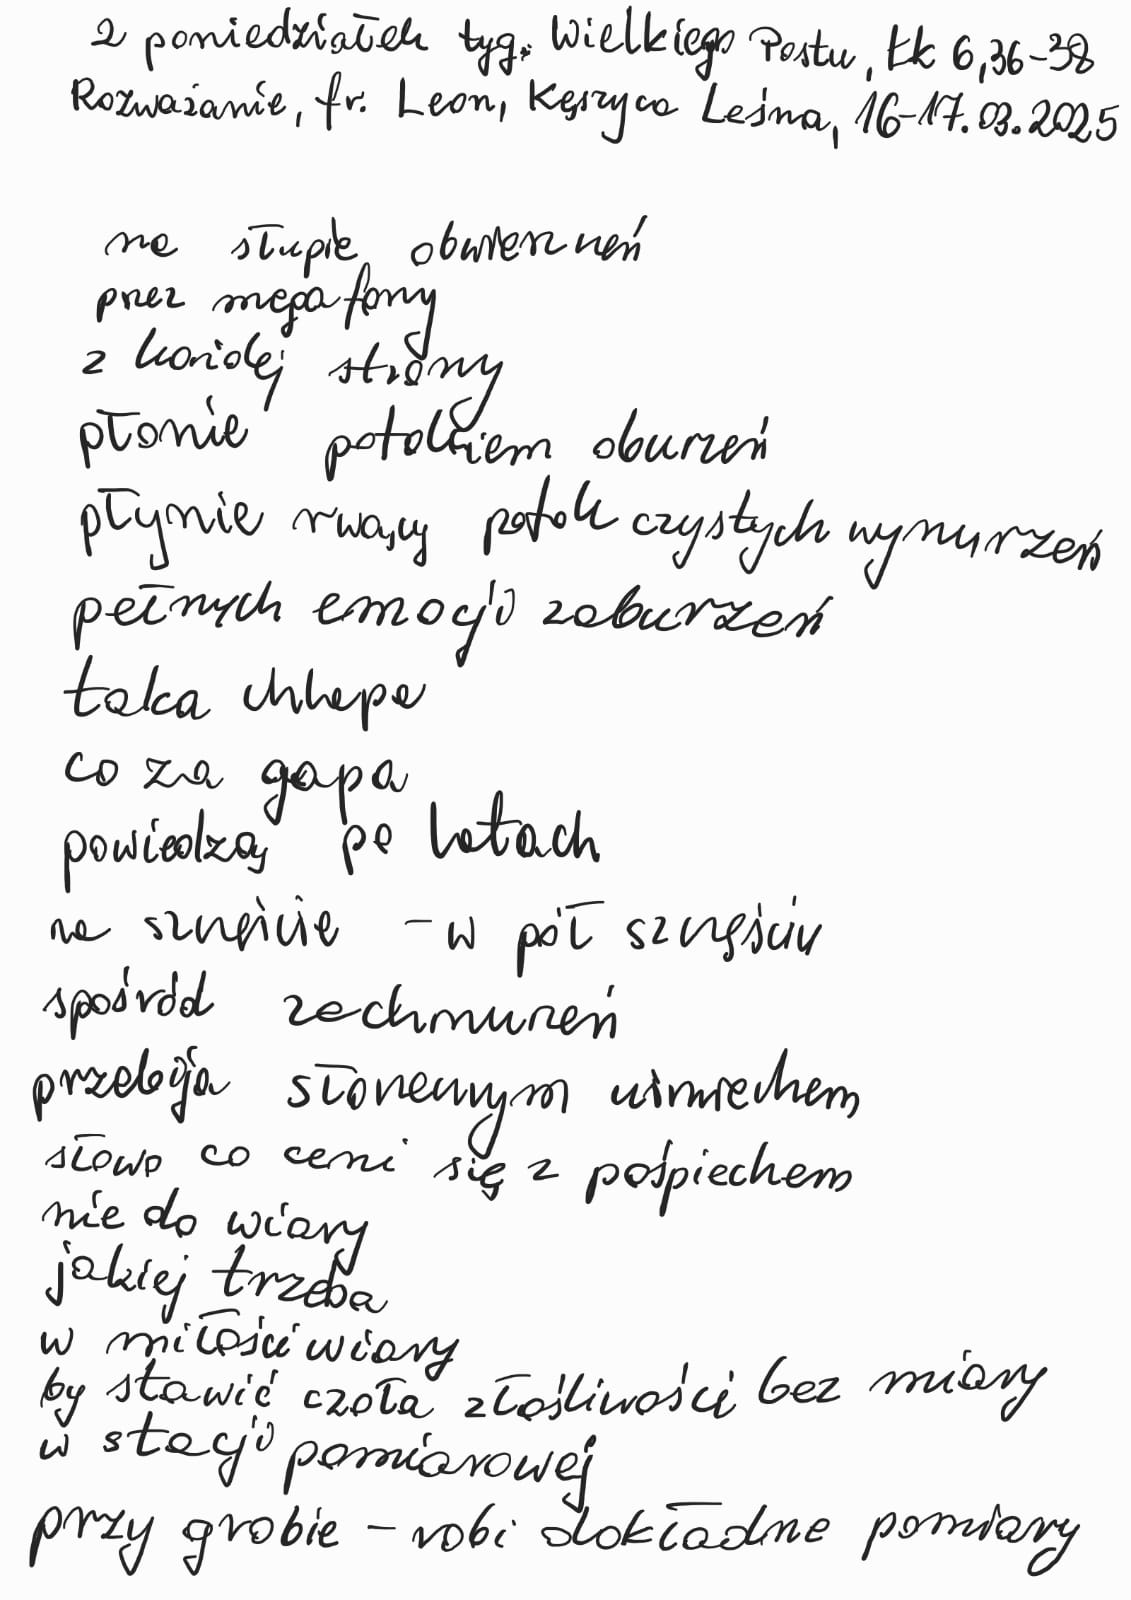 2 poniedziałek tyg. Wielkiego Postu, Łk 6,36-38
Rozważanie, fr. Leon, Kęszyca Leśna, 16-17.03.2025
na słupie obwieszczeń
przez megafony
z każdej strony
płonie potokiem oburzeń
płynie rwący potok czystych wynurzeń
pełnych emocji zaburzeń
taka chlapa
co za gapa
powiedzą po latach
na szczęście - w pół szczęściu
spośród zachmurzeń
przebija słonecznym uśmiechem
słowo co ceni się z pośpiechem
nie do wiary
jakiej trzeba
w miłości wiary
by stawić czoła złośliwości bez miary
w stacji pomiarowej
przy grobie - robi dokładne pomiary